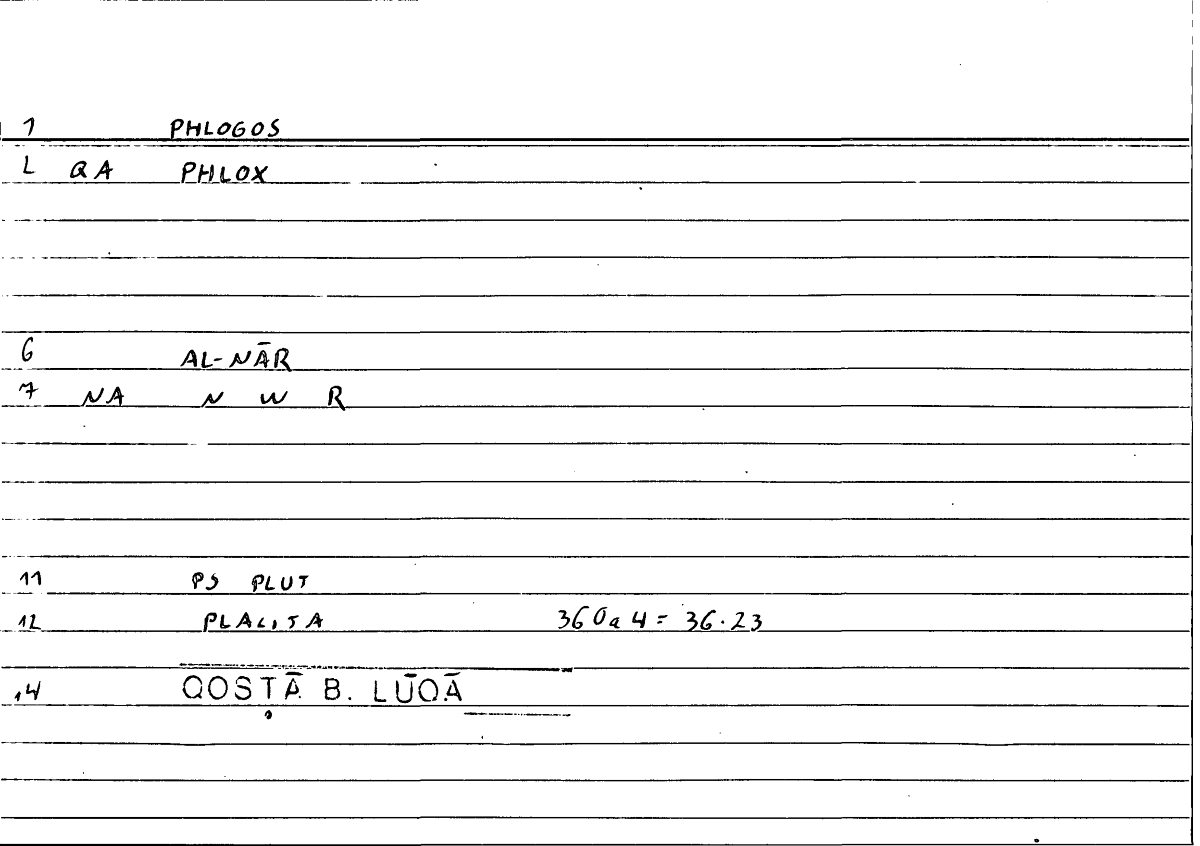 1 PHLOGOS
L QA PHLOX
6 AL-NĀR
7 NA N W R
11 PS PLUT
12 PLACITA 360a4 = 36.23
14 QOSṬĀ B. LŪQĀ